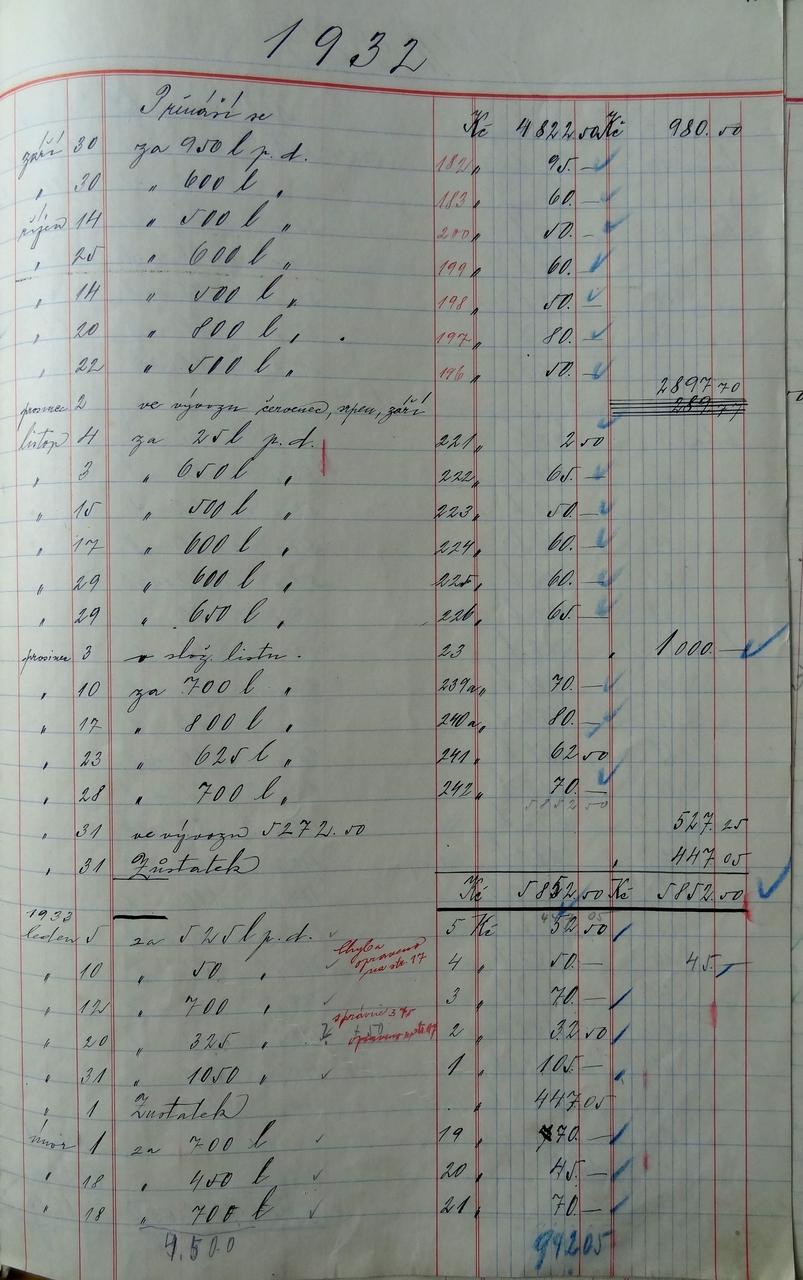 1932
Přináší se Kč 4822 50 Kč 980. 50
září 30 za 950 l p. d. 182 „ 95. —
„ 30 „ 600 l „ 183 „ 60. —
říjen 14 „ 500 l „ 200 „ 50. —
„ 25 „ 600 l „ 199 „ 60. —
„ 14 „ 500 l „ 198 „ 50. —
„ 20 „ 800 l „ 197 „ 80. —
„ 22 „ 500 l „ 196 „ 50. —
2897 70
prosinec 2 ve vývozu červenec, srpen, září 289.77
listop 4 za 25 l p. d. 221 „ 2 50
„ 3 „ 650 l „ 222 „ 65. —
„ 15 „ 500 l „ 223 „ 50. —
„ 17 „ 600 l „ 224 „ 60. —
„ 29 „ 600 l „ 225 „ 60. —
„ 29 „ 650 l „ 226 „ 65. —
prosinec 3 slož. listu. 23 „ 1000. —
„ 10 za 700 l „ 239a „ 70. —
„ 17 „ 800 l „ 240a „ 80. —
„ 23 „ 625 l „ 241 „ 62 50
„ 28 „ 700 l „ 242 „ 70. —
5852 50
„ 31 ve vývozu 5272. 50 527. 25
„ 31 Zůstatek „ 447 05
Kč 5852. 50 Kč 5852. 50
1933
leden 5 za 525 l p. d. 5 Kč 52 50
chyba
opraveno
na str. 17
„ 10 „ 50 „ 4 „ 50. — 45. —
„ 12 „ 700 „ 3 „ 70. —
správně 375
„ 20 „ 325 „ 2 „ 32 50
„ 31 „ 1050 „ 1 „ 105. —
„ 1 Zůstatek „ 447 05
únor 1 za 700 l 19 „ 70. —
„ 18 „ 450 l 20 „ 45. —
„ 18 „ 700 l 21 „ 70. —
4.500 942 05